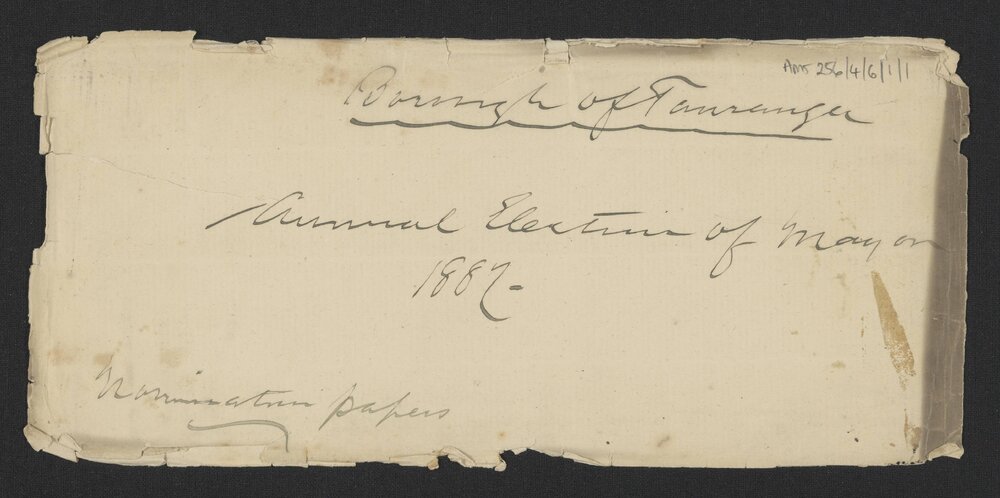 Ams 256/4/6/1/1
Borough of Tauranga
Annual Election of Mayor
1887.
Nomination papers